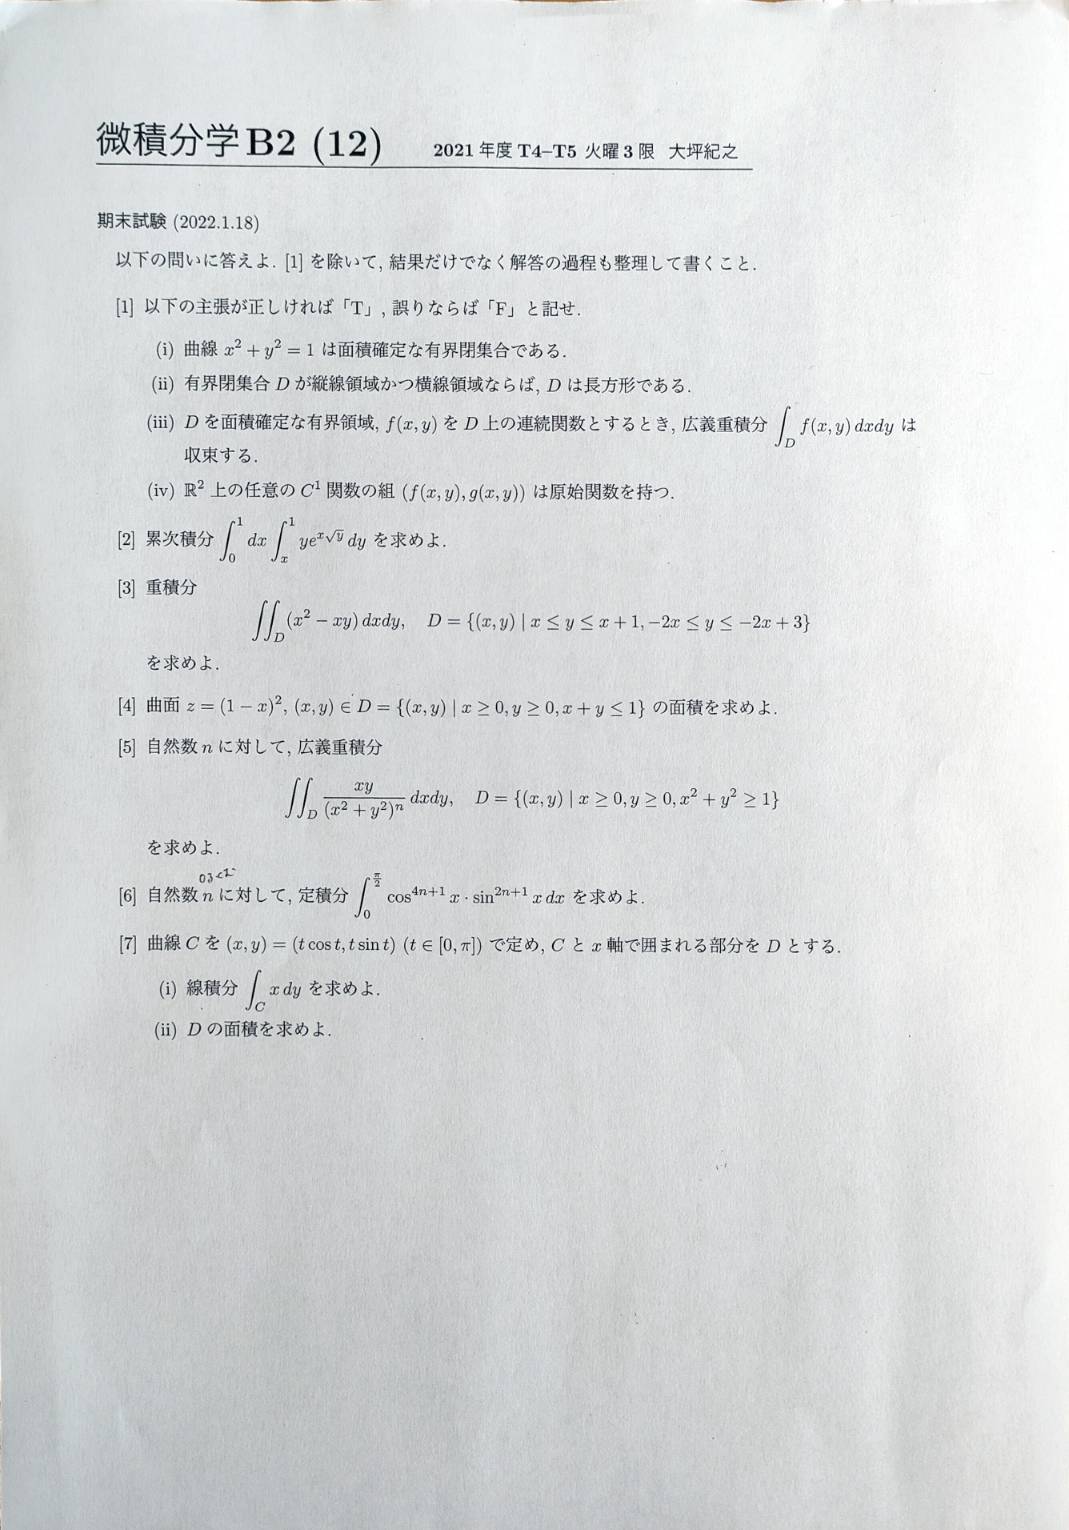 微積分学 B2 (12) 2021 年度 T4–T5 火曜 3 限 大坪紀之
期末試験 (2022.1.18)
以下の問いに答えよ. [1] を除いて, 結果だけでなく解答の過程も整理して書くこと.
[1] 以下の主張が正しければ「T」, 誤りならば「F」と記せ.
(i) 曲線 x² + y² = 1 は面積確定な有界閉集合である.
(ii) 有界閉集合 D が縦線領域かつ横線領域ならば, D は長方形である.
(iii) D を面積確定な有界領域, f(x, y) を D 上の連続関数とするとき, 広義重積分 ∫_D f(x, y) dxdy は
収束する.
(iv) ℝ² 上の任意の C¹ 関数の組 (f(x, y), g(x, y)) は原始関数を持つ.
[2] 累次積分 ∫_0^1 dx ∫_x^1 ye^{x√y} dy を求めよ.
[3] 重積分
∬_D (x² − xy) dxdy, D = {(x, y) | x ≤ y ≤ x + 1, −2x ≤ y ≤ −2x + 3}
を求めよ.
[4] 曲面 z = (1 − x)², (x, y) ∈ D = {(x, y) | x ≥ 0, y ≥ 0, x + y ≤ 1} の面積を求めよ.
[5] 自然数 n に対して, 広義重積分
∬_D xy/(x² + y²)ⁿ dxdy, D = {(x, y) | x ≥ 0, y ≥ 0, x² + y² ≥ 1}
を求めよ.
[6] 自然数 n に対して, 定積分 ∫_0^{π/2} cos^{4n+1} x · sin^{2n+1} x dx を求めよ.
[7] 曲線 C を (x, y) = (t cos t, t sin t) (t ∈ [0, π]) で定め, C と x 軸で囲まれる部分を D とする.
(i) 線積分 ∫_C x dy を求めよ.
(ii) D の面積を求めよ.